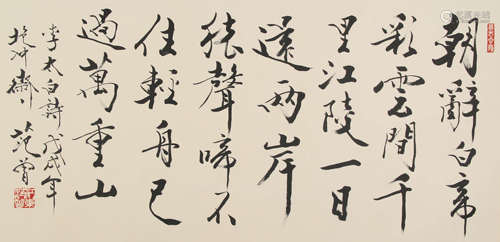 朝辭白帝
彩雲間千
里江陵一日
還兩岸
猿聲啼不
住輕舟已
過萬重山
李太白詩戊戌年
抱冲齋范曾